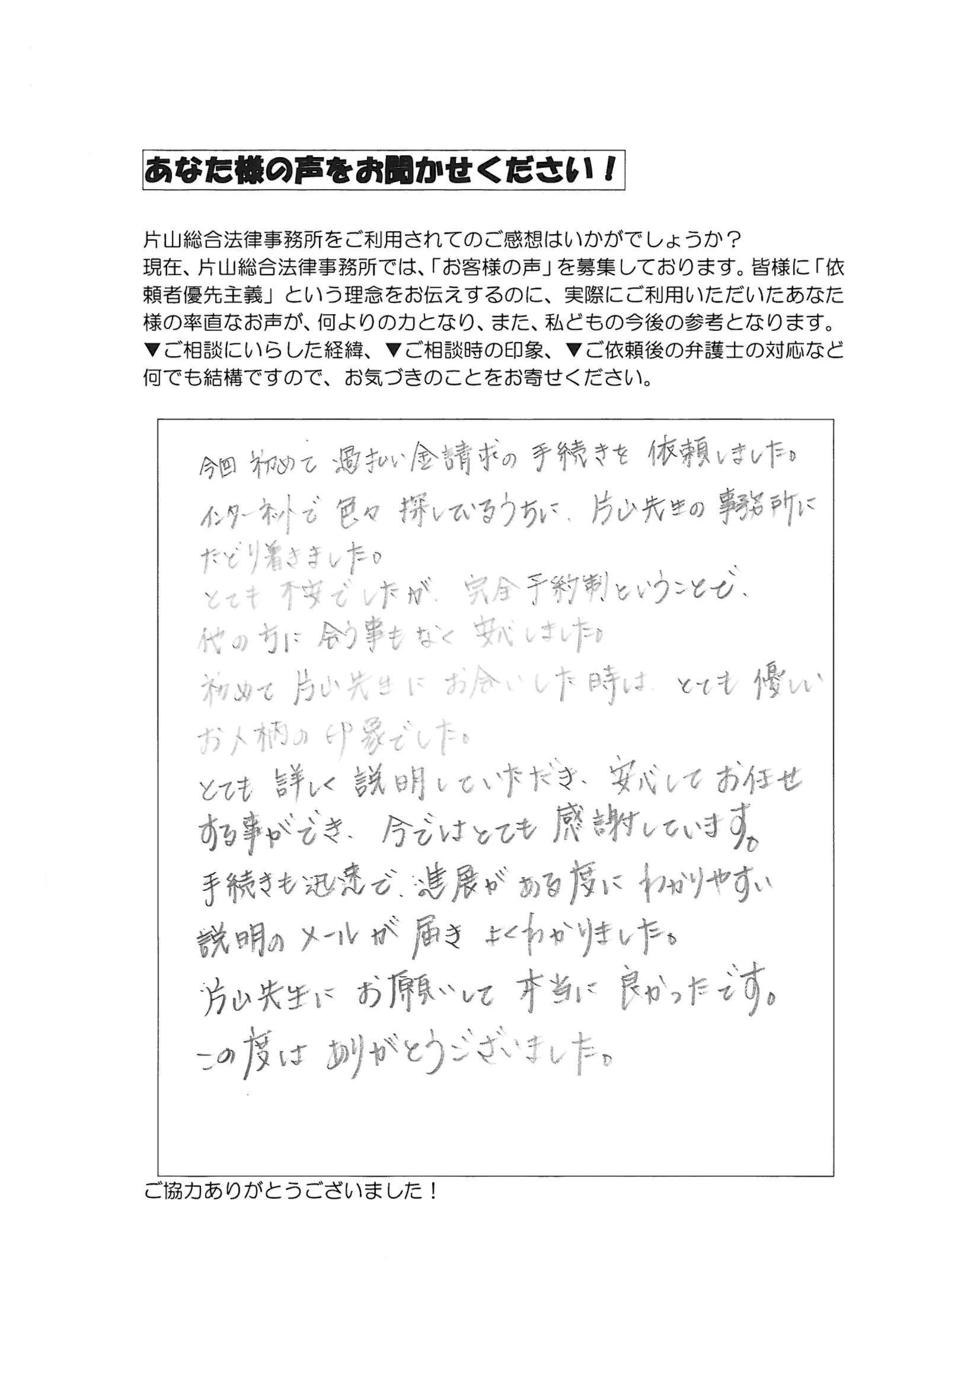 あなた様の声をお聞かせください！
片山総合法律事務所をご利用されてのご感想はいかがでしょうか？
現在、片山総合法律事務所では、「お客様の声」を募集しております。皆様に「依
頼者優先主義」という理念をお伝えするのに、実際にご利用いただいたあなた
様の率直なお声が、何よりの力となり、また、私どもの今後の参考となります。
▼ご相談にいらした経緯、▼ご相談時の印象、▼ご依頼後の弁護士の対応など
何でも結構ですので、お気づきのことをお寄せください。
今回 初めて 過払い金請求の 手続きを 依頼しました。
インターネットで 色々 探しているうちに、片山先生の 事務所に
たどり着きました。
とても 不安でしたが、完全予約制ということで、
他の方に 会う事もなく 安心しました。
初めて 片山先生に お会いした時は、とても 優しい
お人柄の 印象でした。
とても 詳しく 説明していただき、安心して お任せ
する事ができ、今ではとても 感謝しています。
手続きも迅速で、進展が ある度に わかりやすい
説明の メールが 届き よくわかりました。
片山先生に お願いして 本当に 良かったです。
この度は ありがとうございました。
ご協力ありがとうございました！